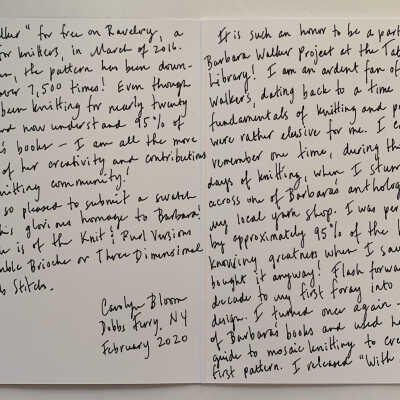 It is such an honor to be a part
Barbara Walker project at the Tat
Library! I am an ardent fan of
Walker's, dating back to a time
fundamentals of knitting and p
were rather elusive for me. I c
remember one time, during th
days of knitting, when I stum
across one of Barbara's antholog
my local yarn shop. I was per
by approximately 95% of the b
knowing greatness when I saw
bought it anyway! Flash forwar
decade to my first foray into
design. I turned once again -
of Barbara's books and used he
guide to mosaic knitting to cre
first pattern. I released "With
lker" for free on Ravelry, a
for knitters, in March of 2016.
en, the pattern has been down-
over 7,500 times! Even though
been knitting for nearly twenty
nd now understand 95% of
's books - I am all the more
of her creativity and contributions
nitting community!
so pleased to submit a swatch
his glorious homage to Barbara!
is of the Knit & Purl Versions
mble Brioche or Three Dimensional
b Stitch.
Carolyn Bloom
Dobbs Ferry, NY
February 2020